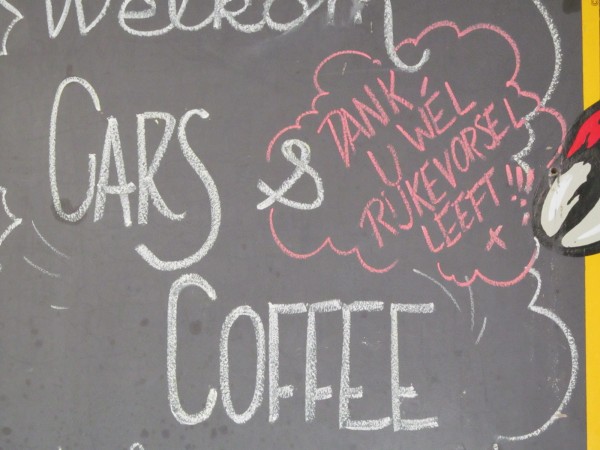 Welkom
CARS &
COFFEE
DANK
U WÉL
RIJKEVORSEL
LEEFT!!
x